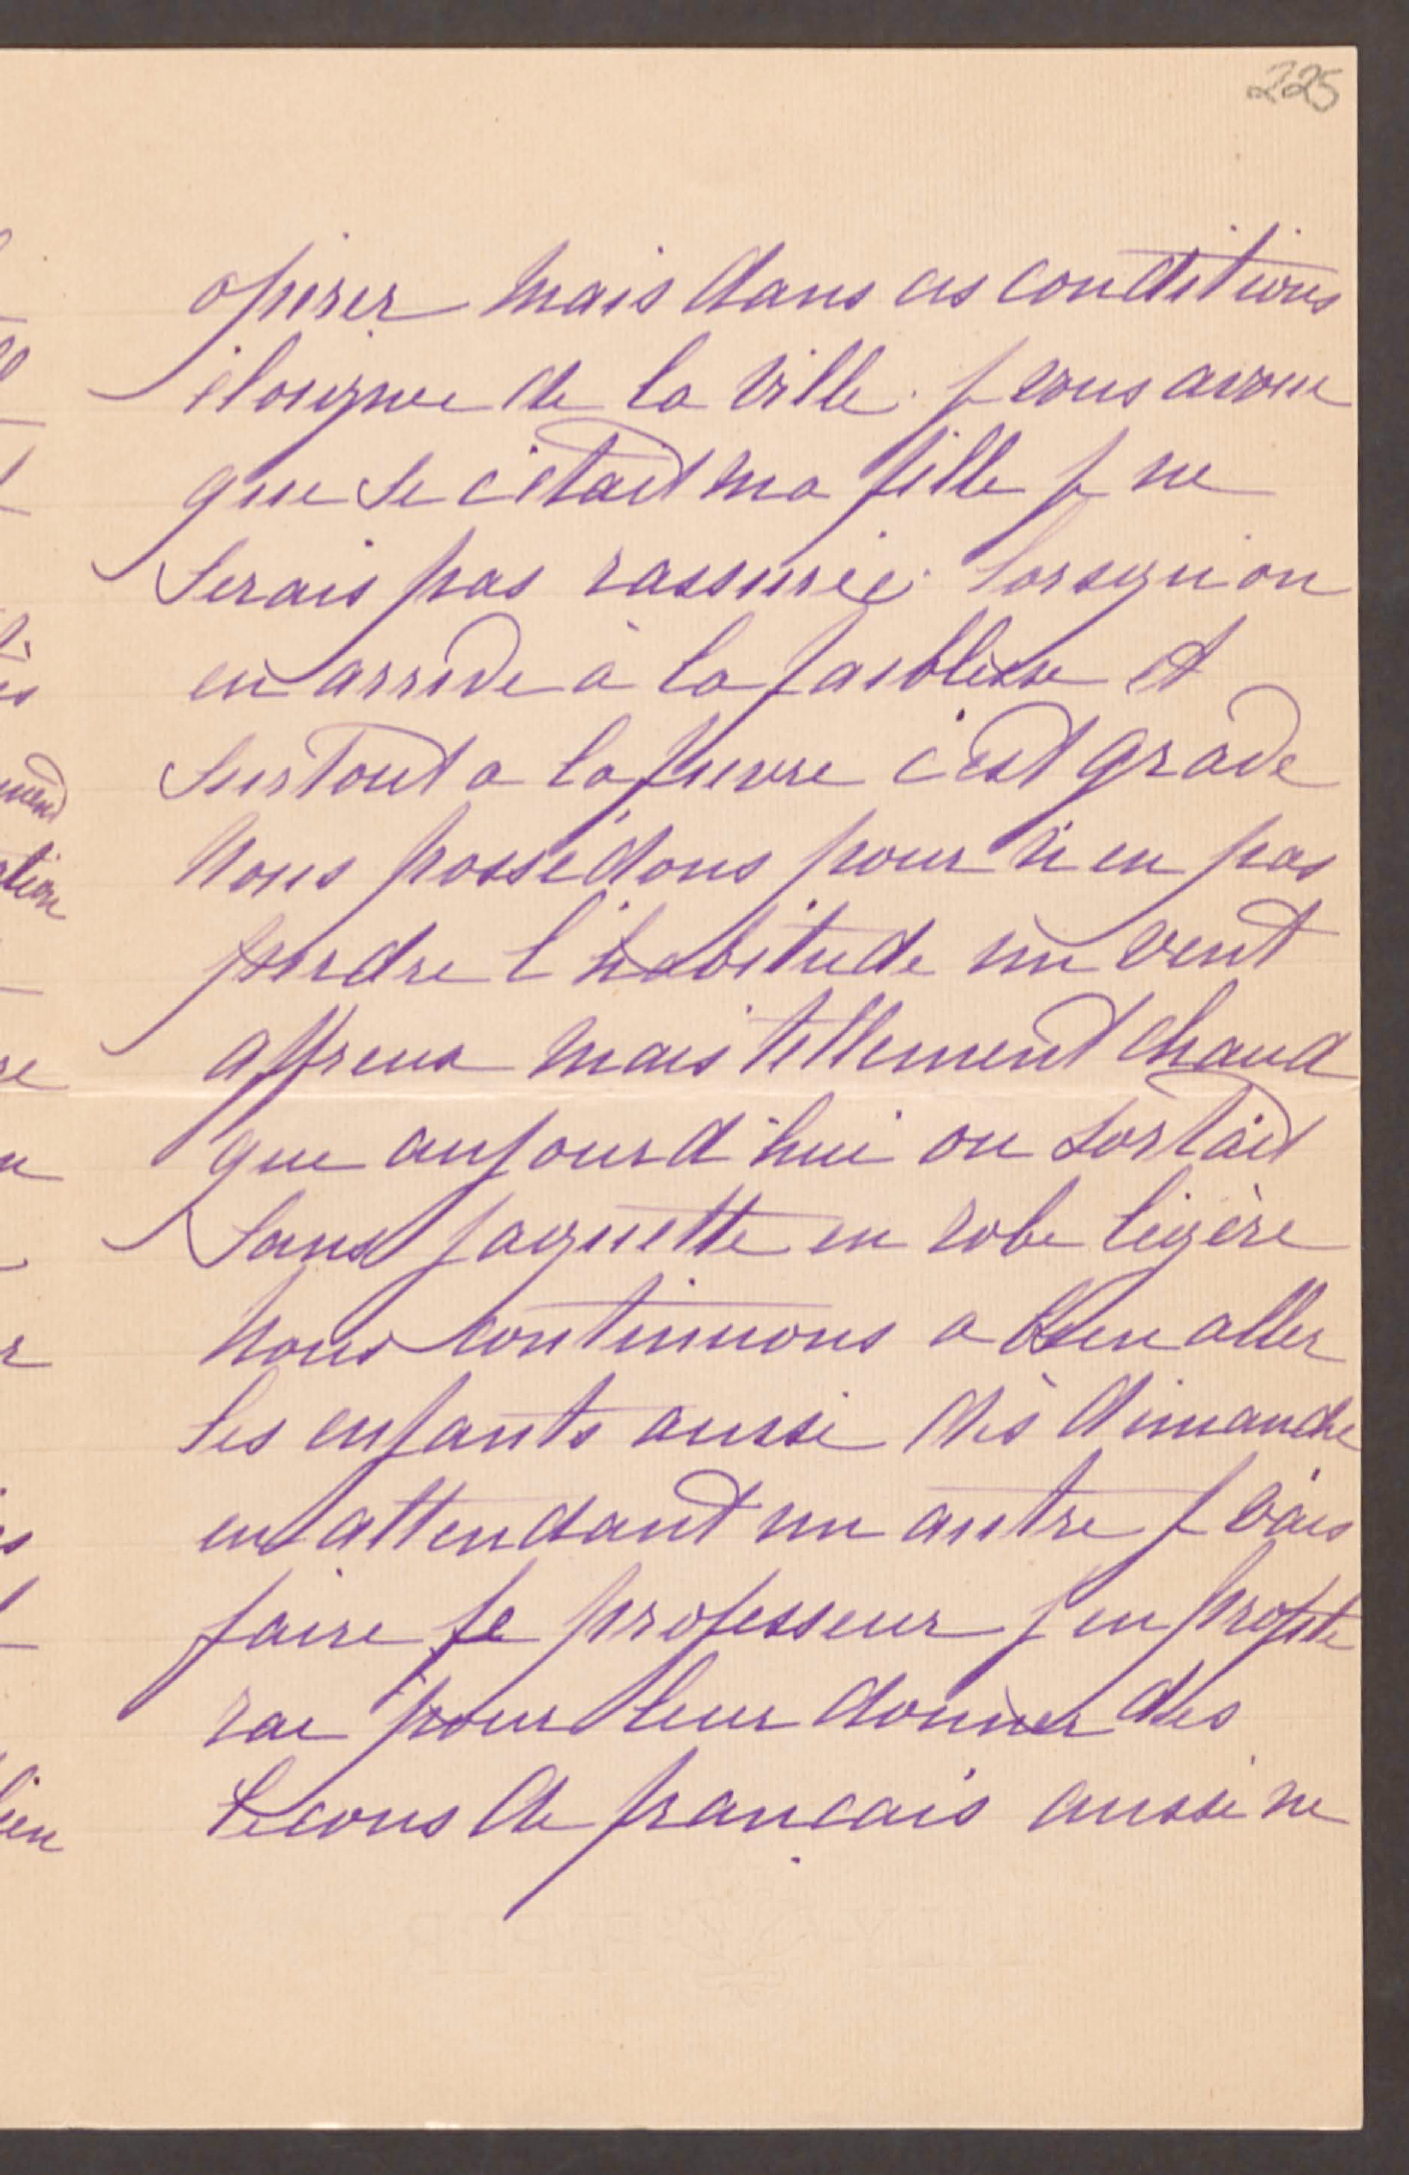 225
opérer mais dans ces conditions
éloignée de la ville. je vous avoue
que si c'était ma fille je ne
serais pas rassurée. lorsqu'on
en arrive à la faiblesse et
surtout a la fievre c'est grave
Nous possédons pour n'en pas
perdre l'habitude un vent
affreux mais tellement chaud
que aujourd'hui on sortait
sans jaquette en robe légère
Nous continuons a bien aller
les enfants aussi dès dimanche
en attendant un autre je vais
faire le professeur j'en profite
rai pour leur donner des
lecons de francais aussi ne